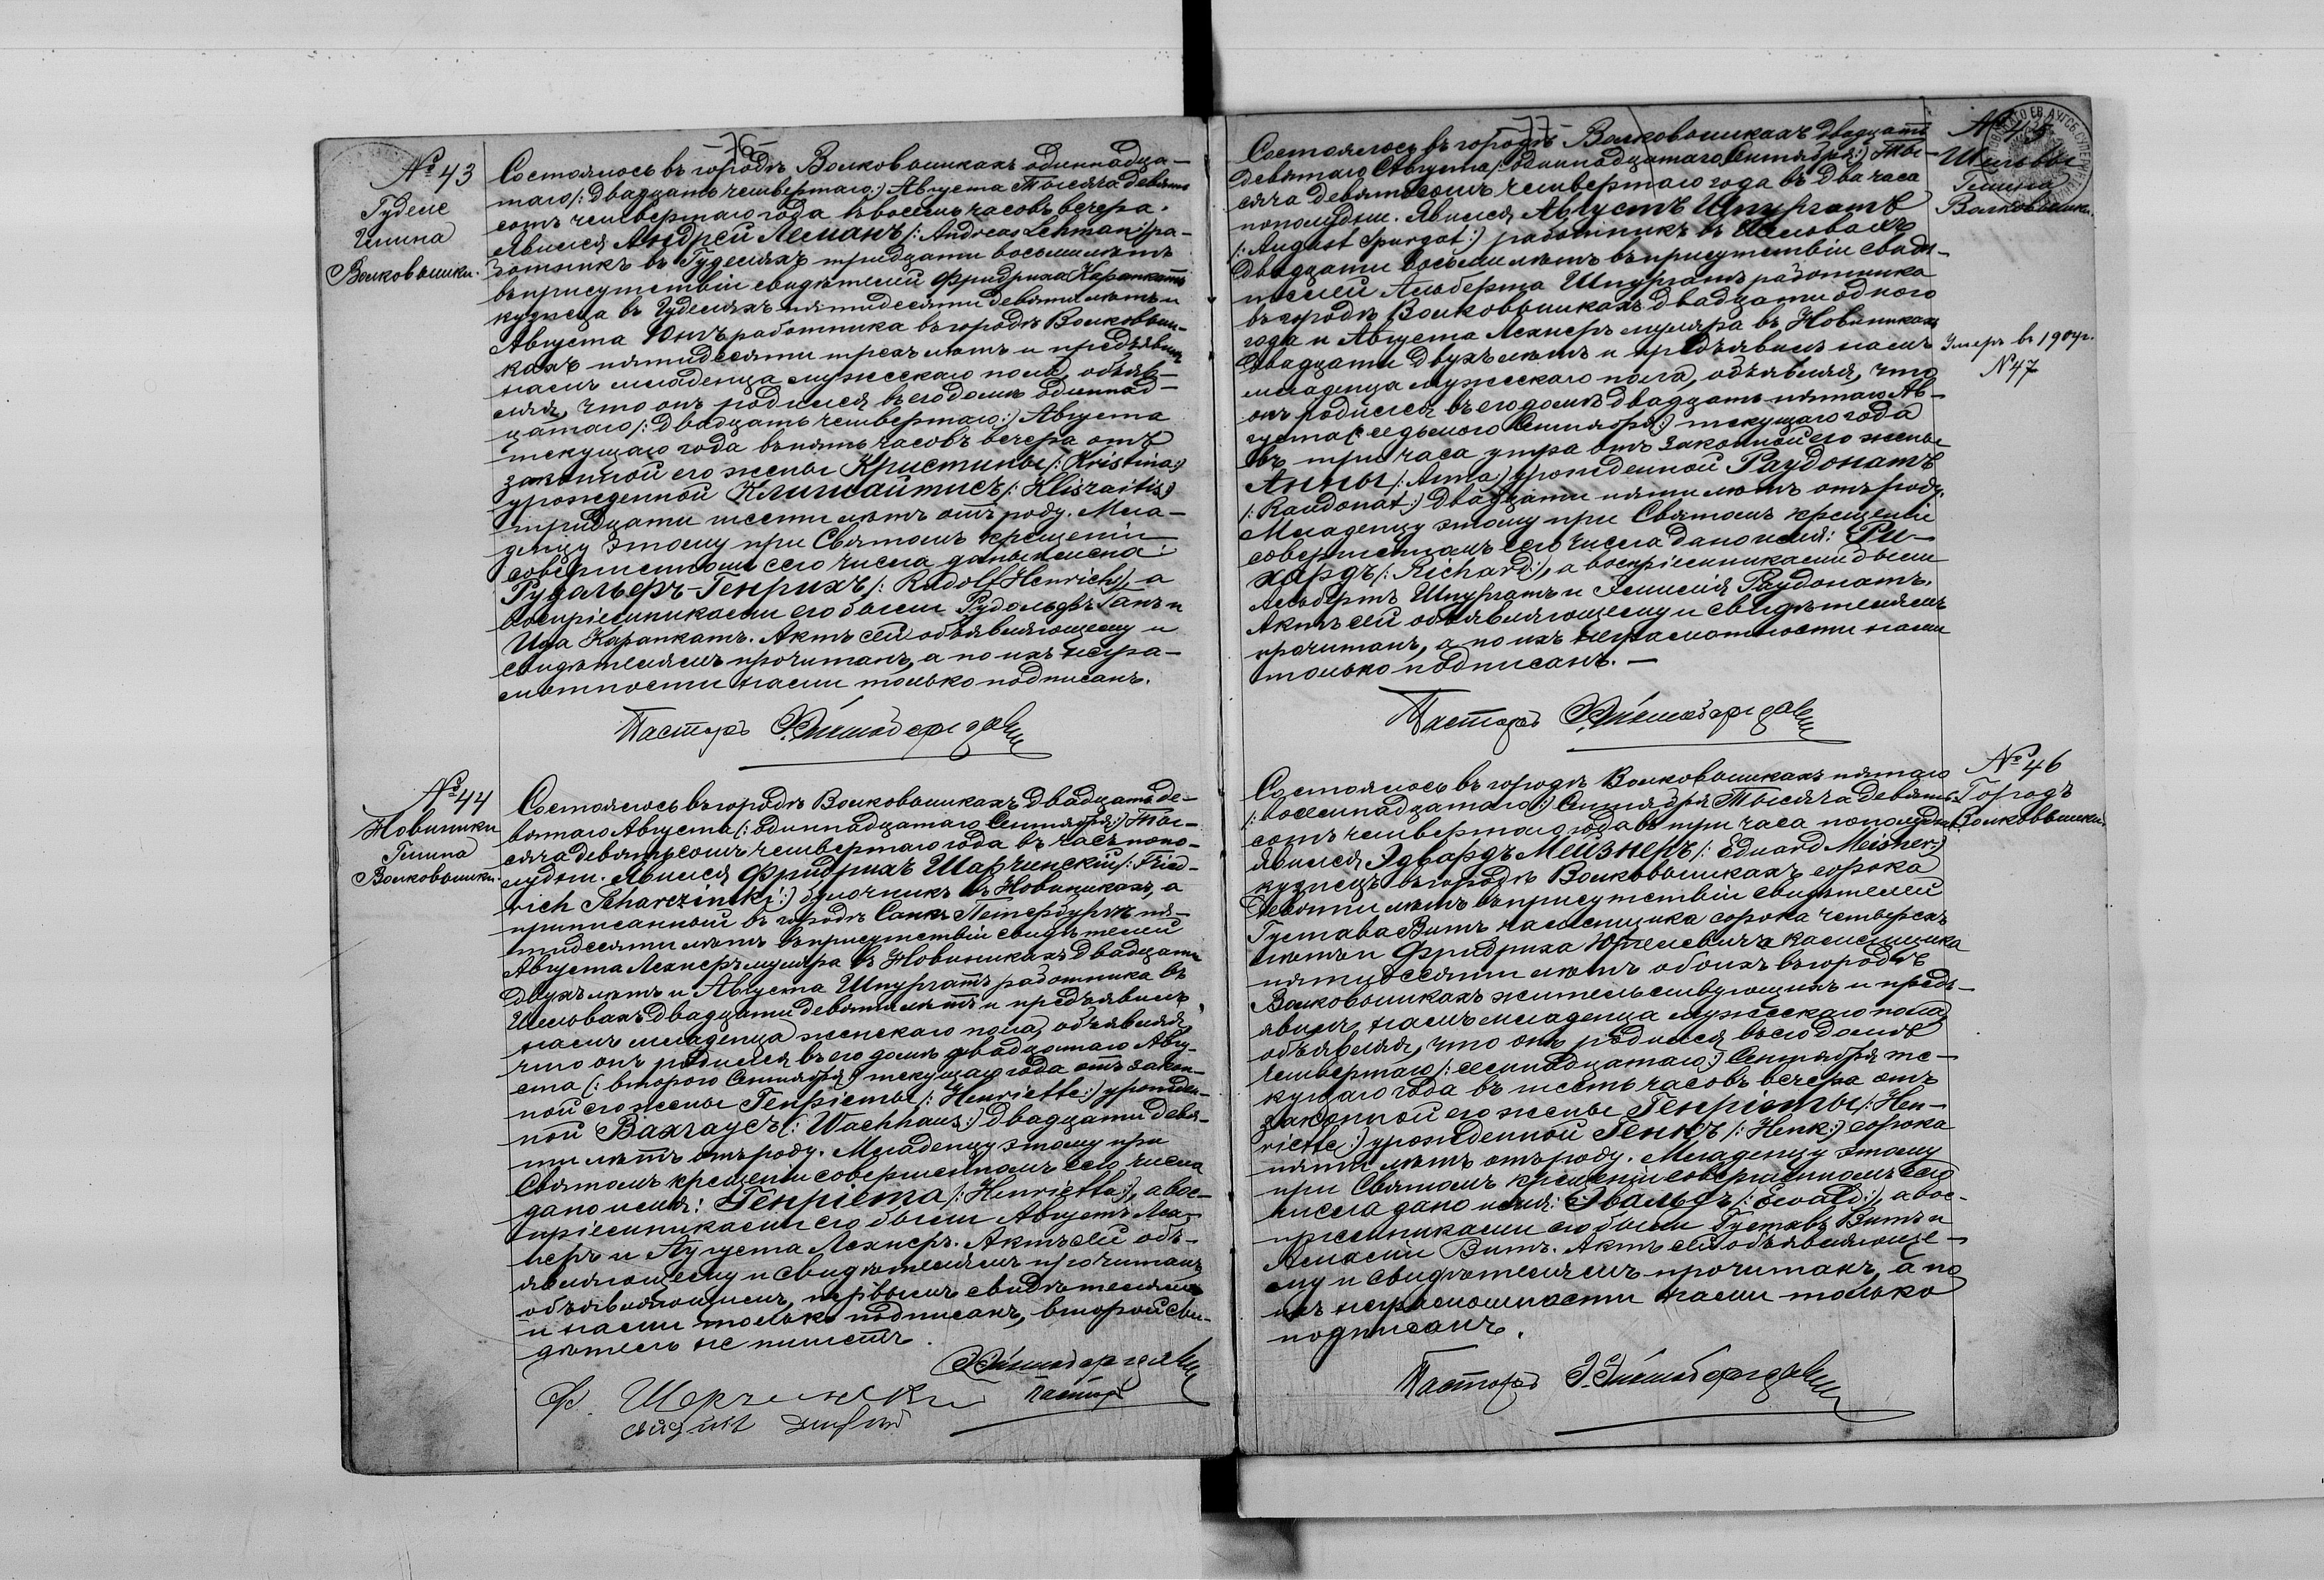 -76-
№ 43
Гудели
Гмина
Волковышки.
Состоялось въ городѣ Волковышкахъ одиннадца-
таго /: двадцать четвертаго :/ Августа Тысяча девять-
сотъ четвертаго года въ восемь часовъ вечера.
Явился Андрей Леманъ /: Andreas Lehman :/ ра-
ботникъ въ Гуделяхъ тридцати восьми лѣтъ
въ присутствіи свидѣтелей Фридриха Каранкатъ
кузнеца въ Гуделяхъ пятидесяти девяти лѣтъ и
Августа работника въ городѣ Волковыш-
кахъ пятидесяти трехъ лѣтъ и предъявилъ
намъ младенца мужескаго пола, объяв-
ляя, что онъ родился въ его домѣ одиннад-
цатаго /: двадцать четвертаго :/ Августа
текущаго года въ пять часовъ вечера отъ
законной его жены Христины /: Kristina :/
урожденной Клишайтисъ /: Kliszaitis :/
тридцати шести лѣтъ отъ роду. Мла-
денцу этому при Святомъ крещеніи
совершенномъ сего числа даны имена:
Рудольфъ-Генрихъ /: Rudolf Henrich :/, а
воспріемниками его были Рудольфъ Ганъ и
Ида Каранкатъ. Актъ сей объявляющему и
свидѣтелямъ прочитанъ, а по ихъ негра-
мотности нами только подписанъ.
Пасторъ
№ 44
Новиники
Гмина
Волковышки.
Состоялось въ городѣ Волковышкахъ двадцать де-
вятаго Августа /: одиннадцатаго Сентября :/ Ты-
сяча девятьсотъ четвертаго года въ часъ попо-
лудни. Явился Фридрихъ Шарчинскій /: Fried-
rich Scharczinski :/ булочникъ въ Новиникахъ, а
приписанный въ городѣ Санкъ Петербургѣ пя-
тидесяти лѣтъ въ присутствіи свидѣтелей
Августа Лехнеръ муляра въ Новиникахъ двадцати
двухъ лѣтъ и Августа Шпургатъ работника въ
Шеловахъ двадцати девяти лѣтъ и предъявилъ
намъ младенца женскаго пола, объявляя,
что онъ родился въ его домѣ двадцатаго Авгу-
ста /: второго Сентября :/ текущаго года отъ закон-
ной его жены Генріеты /: Henriette :/ урожден-
ной Вахгаусъ /: Wachhaus :/ двадцати девя-
ти лѣтъ отъ роду. Младенцу этому при
Святомъ крещеніи совершенномъ сего числа
дано имя: Генріета /: Henrietta :/, а вос-
пріемниками его были Августъ Лех-
неръ и Аугуста Лехнеръ. Актъ сей объ-
являющему и свидѣтелямъ прочитанъ
объявляющимъ, первымъ свидѣтелемъ
и нами только подписанъ, второй сви-
дѣтель не пишетъ.
Пасторъ
-77-
№ 45
Гмина
Волковышки.
Состоялось въ городѣ Волковышкахъ двадцать
девятаго Августа /: одиннадцатаго Сентября :/ Ты-
сяча девятьсотъ четвертаго года въ два часа
пополудни. Явился Августъ Шпургатъ
/: August Spurgat :/ работникъ въ Шеловахъ
двадцати восьми лѣтъ въ присутствіи свидѣ-
телей Альберта Шпургатъ работника
въ городѣ Волковышкахъ двадцати одного
года и Августа Лехнеръ муляра въ Новиникахъ
двадцати двухъ лѣтъ и предъявилъ намъ
младенца мужескаго пола, объявляя, что
онъ родился въ его домѣ двадцать пятаго Ав-
густа /: седьмого Сентября :/ текущаго года
въ три часа утра отъ законной его жены
Анны /: Anna :/ урожденной Раудонатъ
/: Raudonat :/ двадцати пяти лѣтъ отъ роду.
Младенцу этому при Святомъ крещеніи
совершенномъ сего числа дано имя: Ри-
хардъ /: Richard :/, а воспріемниками были
Альбертъ Шпургатъ и Эмилія Раудонатъ.
Актъ сей объявляющему и свидѣтелямъ
прочитанъ, а по ихъ неграмотности нами
только подписанъ. —
Умеръ въ 1904 г.
№ 47
Пасторъ
№ 46
Городъ
Волковышки.
Состоялось въ городѣ Волковышкахъ пятаго
/: восемнадцатаго :/ Сентября Тысяча девять-
сотъ четвертаго года въ три часа пополудни.
Явился Эдвардъ Мейзнеръ /: Eduard Meisner :/
кузнецъ въ городѣ Волковышкахъ сорока
девяти лѣтъ въ присутствіи свидѣтелей
Густава Витъ каменщика сорока четырехъ
лѣтъ и Фридриха Юргелевича каменщика
пятидесяти лѣтъ обоихъ въ городѣ
Волковышкахъ жительствующихъ и предъ-
явилъ намъ младенца мужескаго пола,
объявляя, что онъ родился въ его домѣ
четвертаго /: семнадцатаго :/ Сентября те-
кущаго года въ шесть часовъ вечера отъ
законной его жены Генріеты /: Hen-
riette :/ урожденной Генкъ /: Henk :/ сорока
пяти лѣтъ отъ роду. Младенцу этому
при Святомъ крещеніи совершенномъ сего
числа дано имя: Эвальдъ /: Ewald :/, а вос-
пріемниками его были Густавъ Витъ и
Витъ. Актъ сей объявляюще-
му и свидѣтелямъ прочитанъ, а по
ихъ неграмотности нами только
подписанъ.
Пасторъ